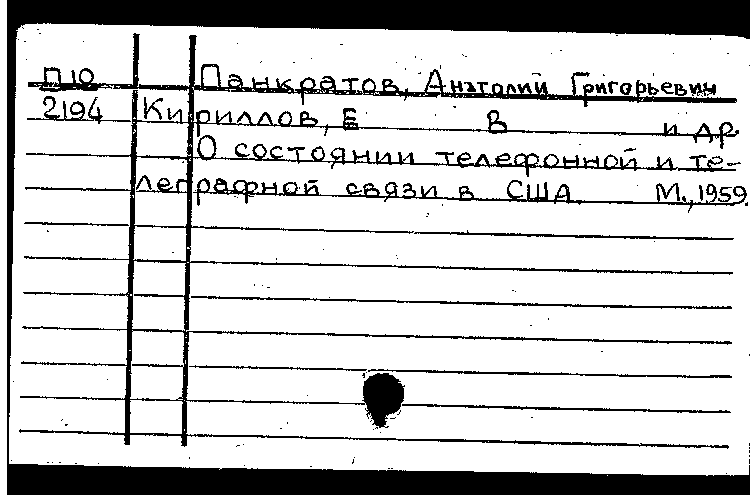 П10 Панкратов, Анатолий Григорьевич
2194 Кириллов, Е В и др.
О состоянии телефонной и те-
леграфной связи в США. М., 1959.